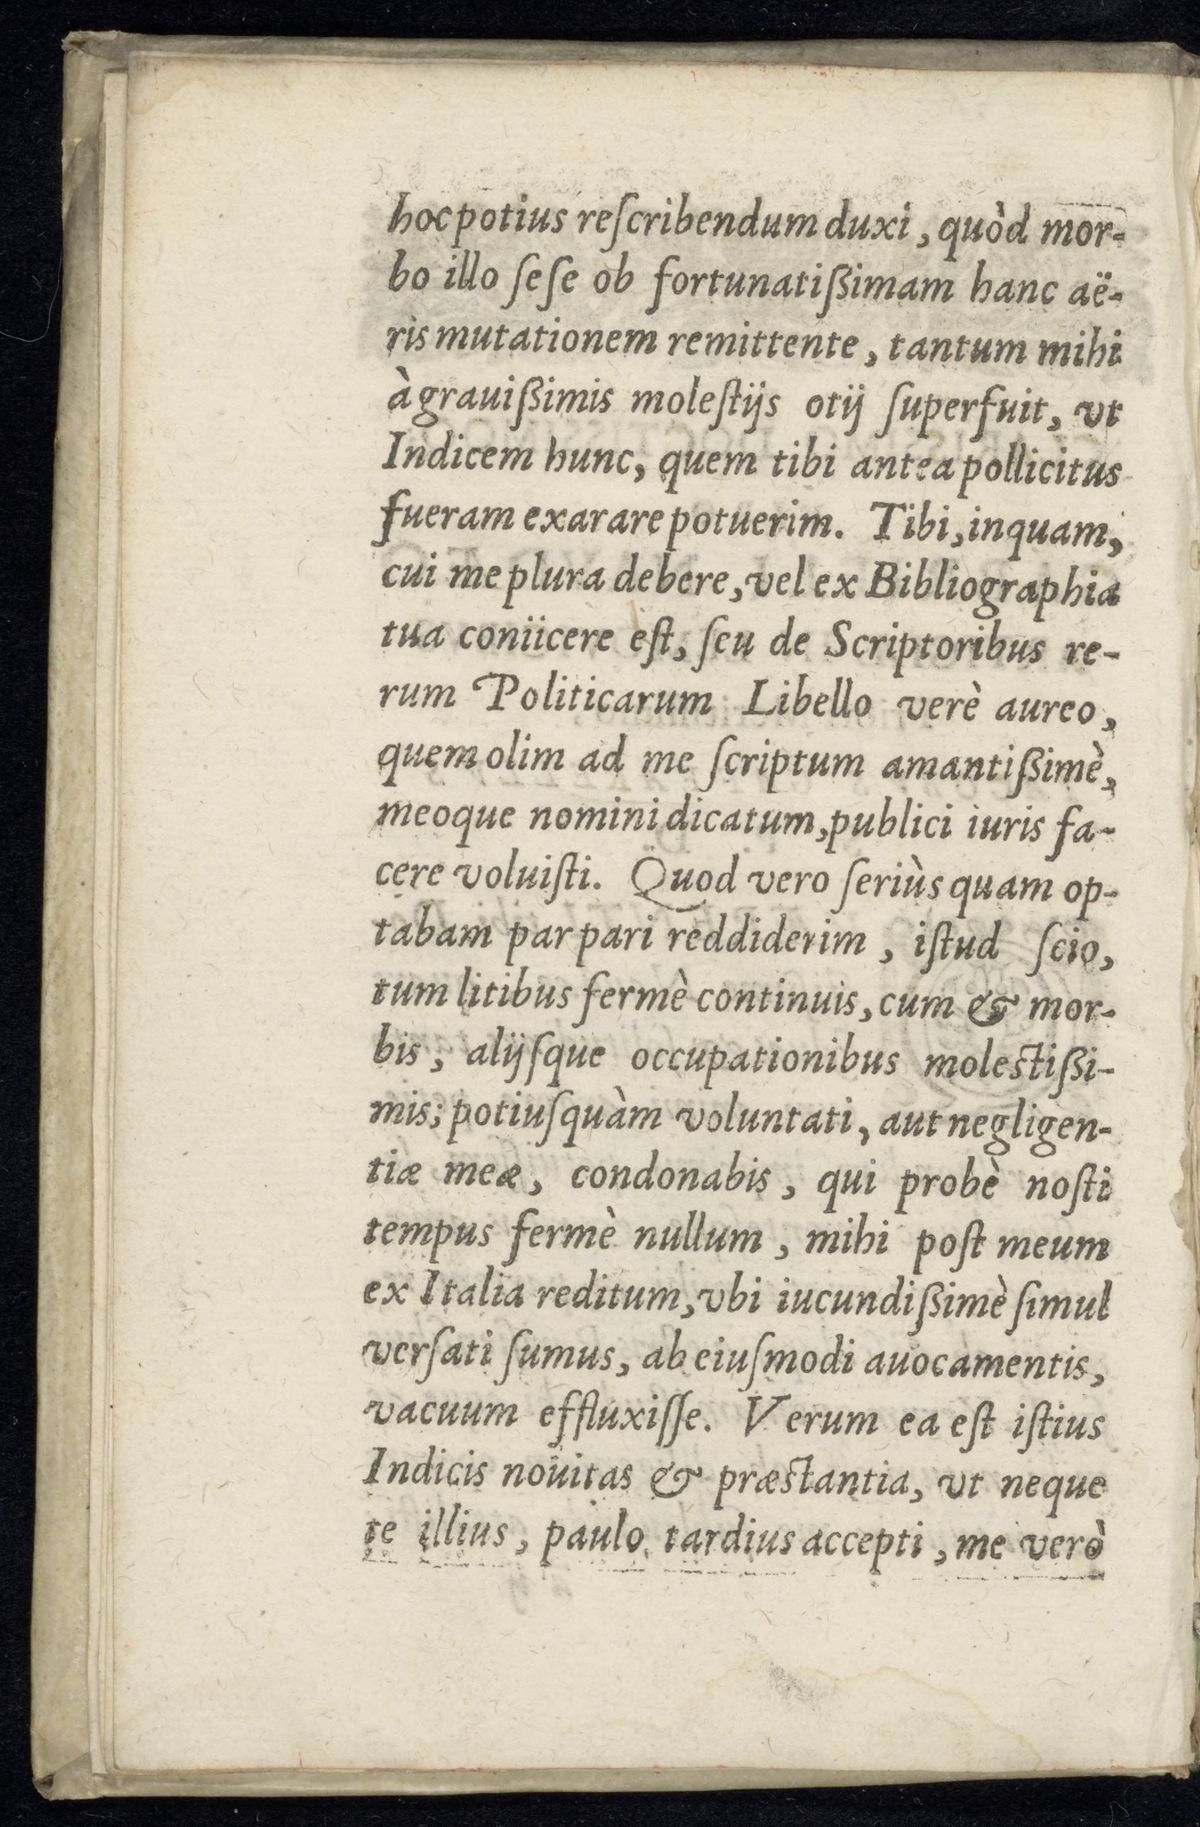 hoc potius reſcribendum duxi, quòd mor-
bo illo ſeſe ob fortunatißimam hanc aë-
ris mutationem remittente, tantum mihi
à grauißimis moleſtijs otij ſuperfuit, vt
Indicem hunc, quem tibi antea pollicitus
fueram exarare potuerim. Tibi, inquam,
cui me plura debere, vel ex Bibliographia
tua coniicere eſt, ſeu de Scriptoribus re-
rum Politicarum Libello verè aureo,
quem olim ad me ſcriptum amantißimè,
meoque nomini dicatum, publici iuris fa-
cere voluiſti. Quod vero ſeriùs quam op-
tabam par pari reddiderim, iſtud ſcio,
tum litibus fermè continuis, cum & mor-
bis, alijſque occupationibus moleſtißi-
mis; potiuſquàm voluntati, aut negligen-
tiæ meæ, condonabis, qui probè noſti
tempus fermè nullum, mihi poſt meum
ex Italia reditum, vbi iucundißimè ſimul
verſati ſumus, ab eiuſmodi auocamentis,
vacuum effluxiſſe. Verum ea eſt iſtius
Indicis nouitas & præſtantia, vt neque
te illius, paulo tardius accepti, me verò